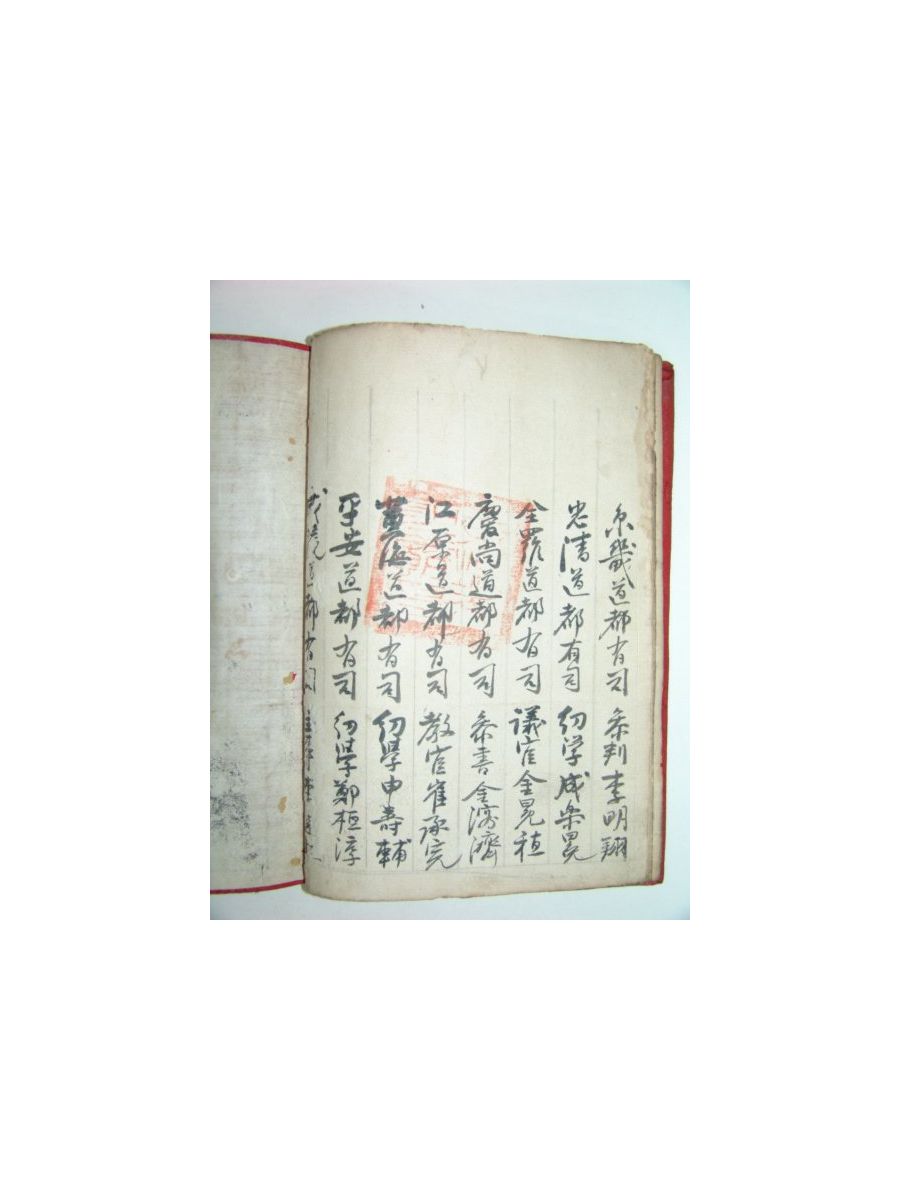 京畿道都有司 参判李明翔
忠清道都有司 幼学成樂冕
全羅道都有司 議官金冕植
慶尚道都有司 参書金濟
江原道都有司 教官崔承完
黃海道都有司 幼學申壽輔
平安道都有司 幼學鄭桓淳
咸鏡道都有司